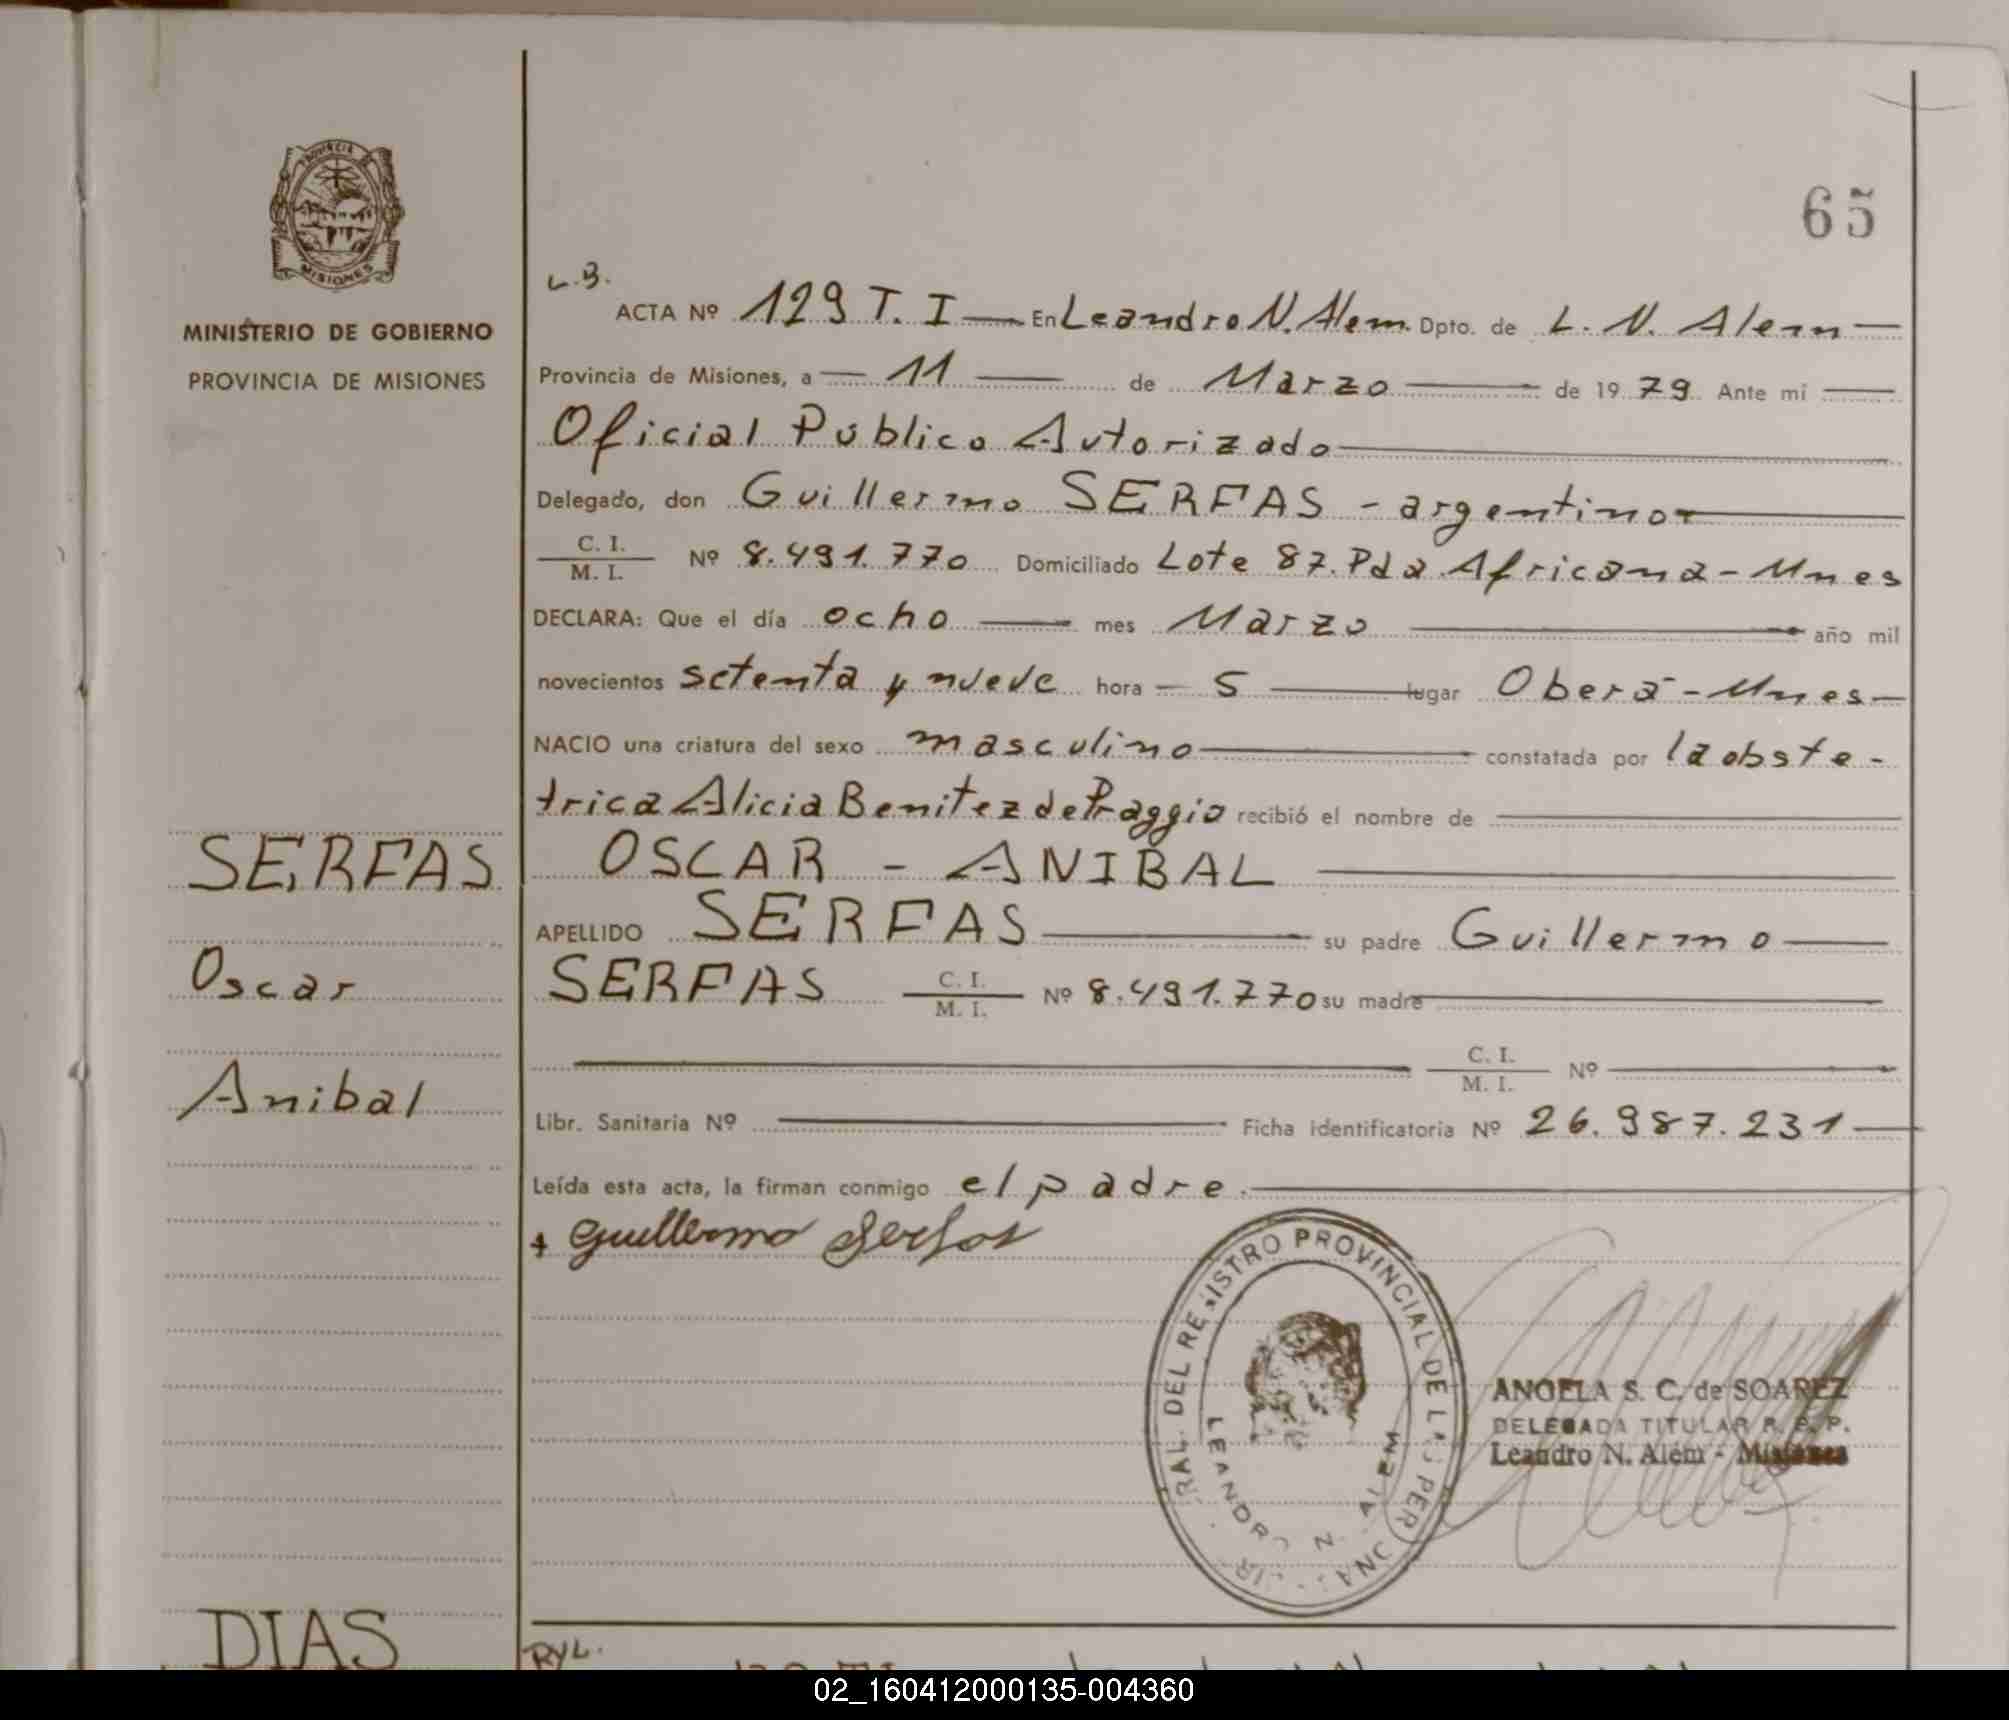 PROVINCIA DE
MISIONES
MINISTERIO DE GOBIERNO
PROVINCIA DE MISIONES
65
L.B.
ACTA Nº 129 T. I — En Leandro N. Alem. Dpto. de L. N. Alem —
Provincia de Misiones, a — 11 — de Marzo — de 1979. Ante mi —
Oficial Público Autorizado —
Delegado, don Guillermo SERFAS - argentino —
C. I. / M. I. Nº 8.491.770 Domiciliado Lote 87. Pda Africana - Mnes
DECLARA: Que el día ocho — mes Marzo — año mil
novecientos setenta y nueve hora — 5 — lugar Oberá - Mnes —
NACIO una criatura del sexo masculino — constatada por la obste-
trica Alicia Benitez de Praggio recibió el nombre de —
OSCAR - ANIBAL —
APELLIDO SERFAS — su padre Guillermo —
SERFAS C. I. / M. I. Nº 8.491.770 su madre —
— C. I. / M. I. Nº —
Libr. Sanitaria Nº — Ficha identificatoria Nº 26.987.231 —
Leída esta acta, la firman conmigo el padre. —
Guillermo Serfas
SERFAS
Oscar
Anibal
RAL DEL REGISTRO PROVINCIAL DE LAS PERSONAS
LEANDRO N. ALEM
ANGELA S. C. de SOAREZ
DELEGADA TITULAR R. P. P.
Leandro N. Alem - Misiones
DIAS
RYL.
02_160412000135-004360